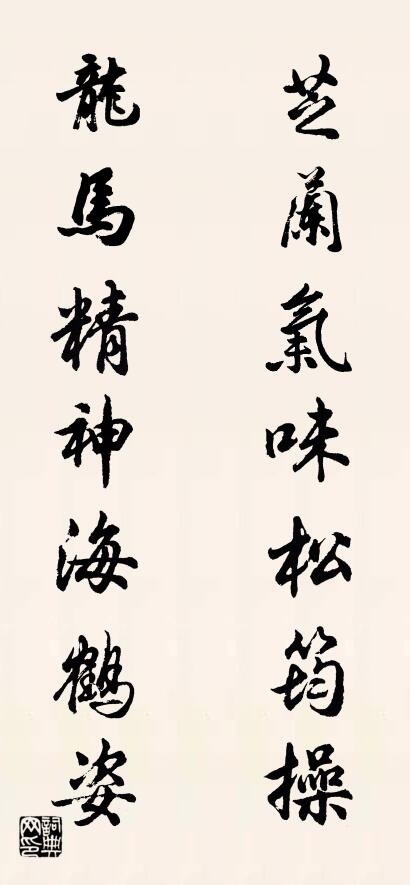 芝蘭氣味松筠操
龍馬精神海鶴姿
詞典网印